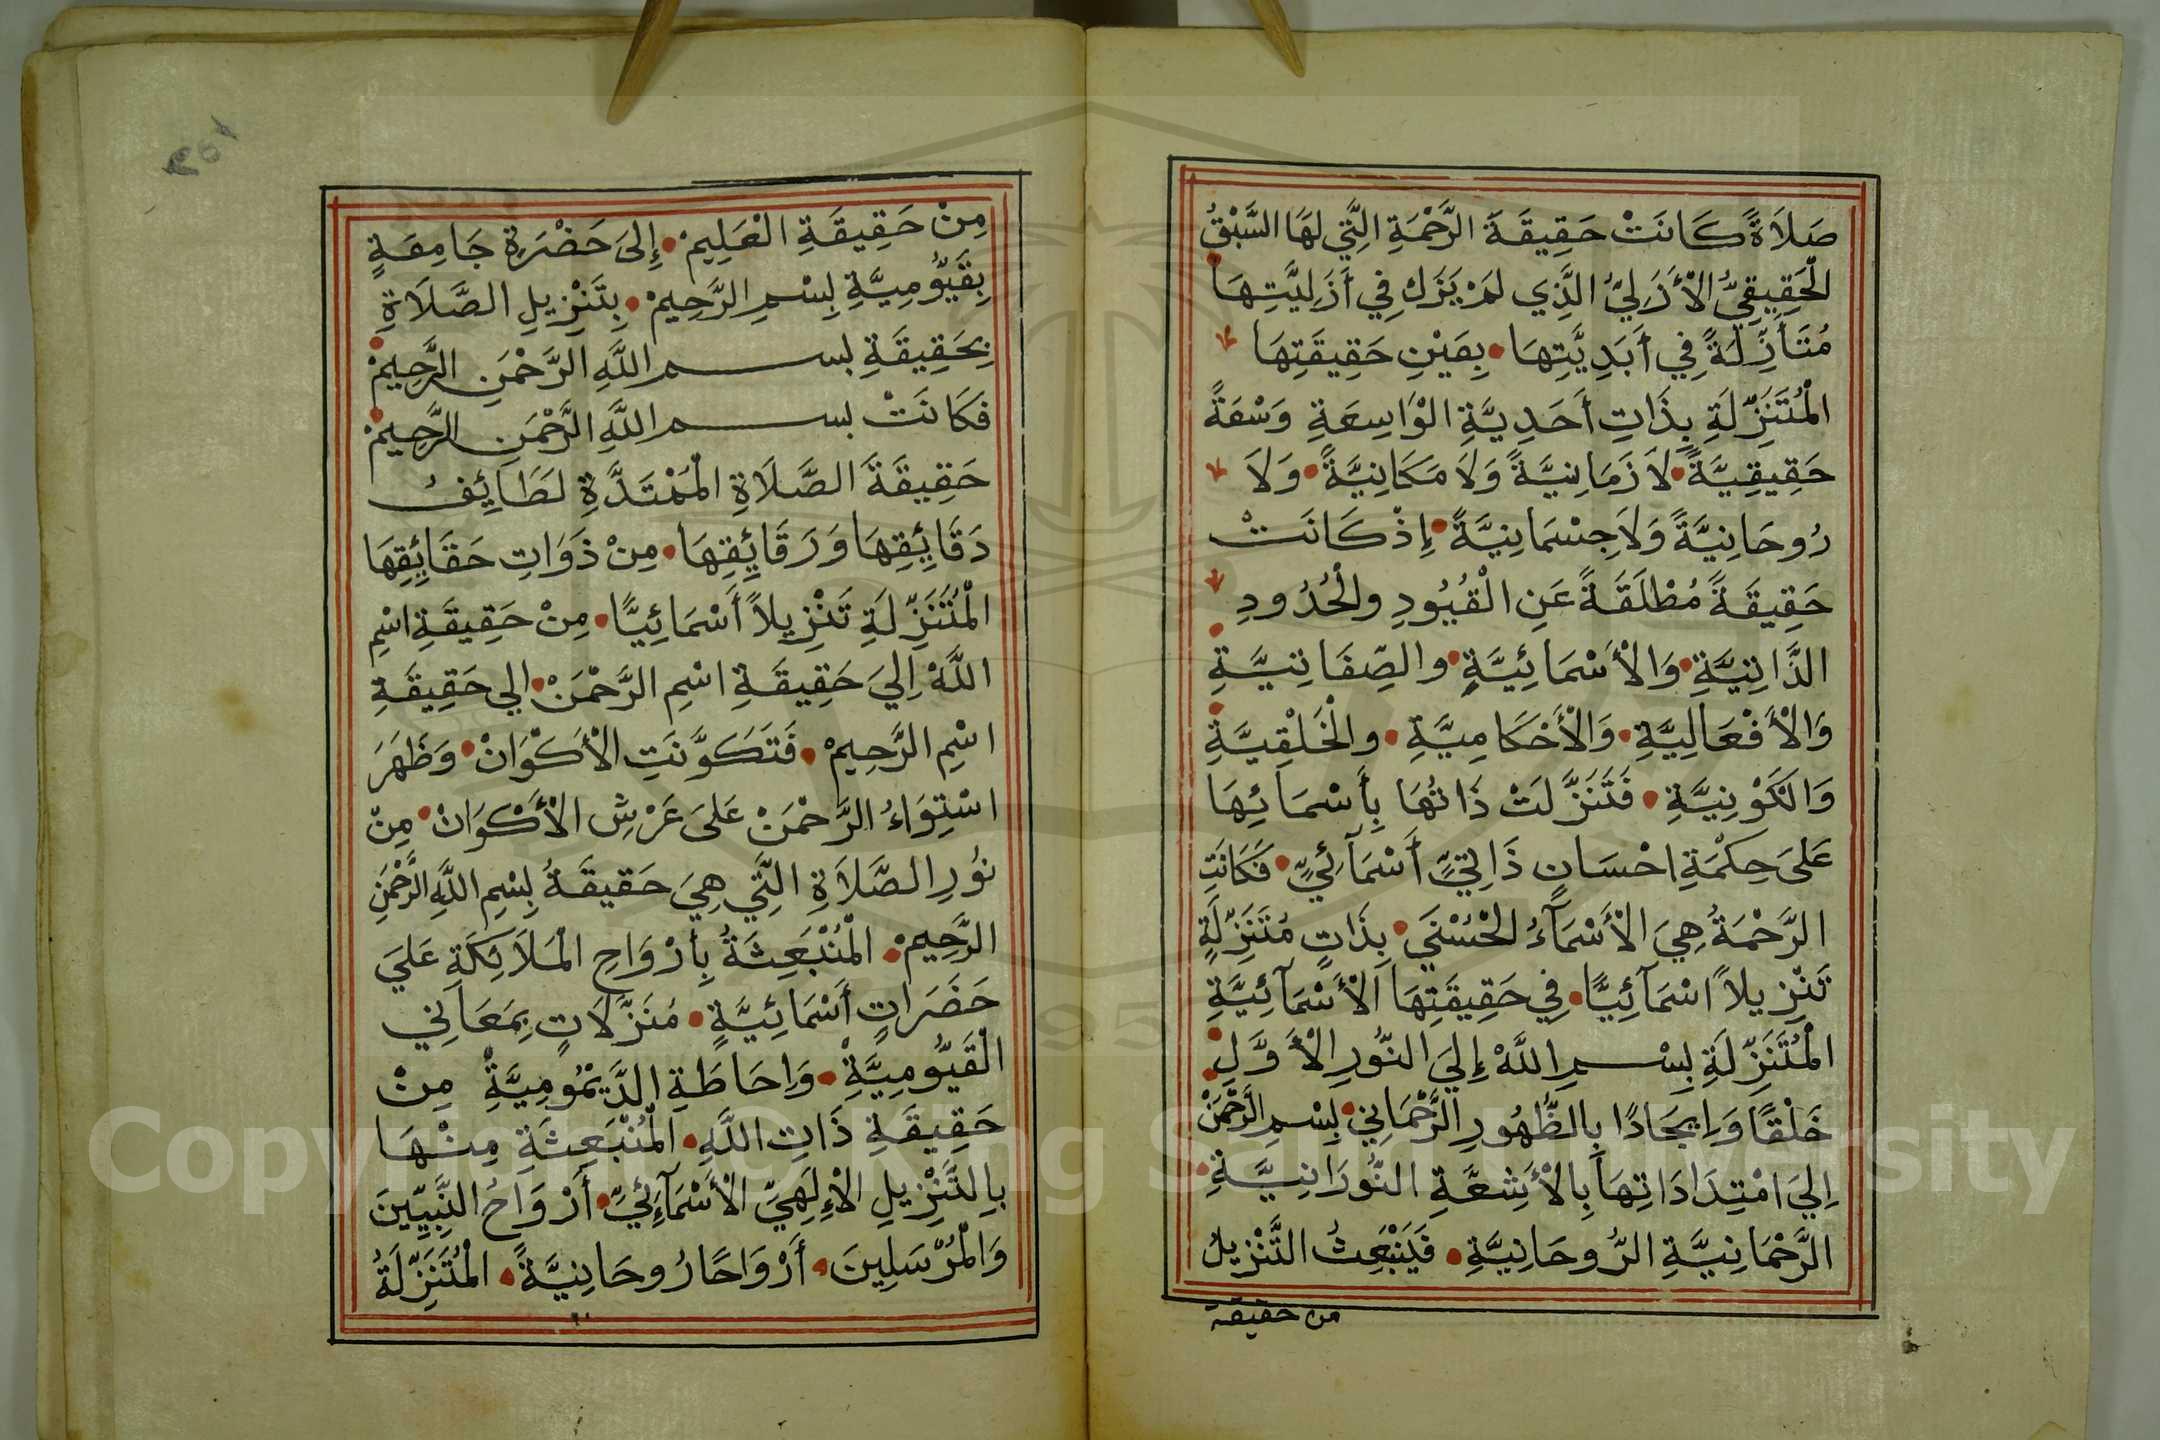 صَلَاةً كَانَتْ حَقِيقَةَ الرَّحْمَةِ الَّتِي لَهَا السَّبْقُ
الْحَقِيقِيُّ الْأَزَلِيُّ الَّذِي لَمْ يَزَلْ فِي أَزَلِيَّتِهَا
مُتَأَزِّلَةً فِي أَبَدِيَّتِهَا بِعَيْنِ حَقِيقَتِهَا
الْمُتَنَزِّلَةِ بِذَاتِ أَحَدِيَّةِ الْوَاسِعَةِ وَسْعَةً
حَقِيقِيَّةً لَا زَمَانِيَّةً وَلَا مَكَانِيَّةً وَلَا
رُوحَانِيَّةً وَلَا جِسْمَانِيَّةً إِذْ كَانَتْ
حَقِيقَةً مُطْلَقَةً عَنِ الْقُيُودِ والْحُدُودِ
الذَّاتِيَّةِ وَالْأَسْمَائِيَّةِ والصِّفَاتِيَّةِ
وَالْأَفْعَالِيَّةِ وَالْأَحْكَامِيَّةِ والْخَلْقِيَّةِ
وَالْكَوْنِيَّةِ فَتَنَزَّلَتْ ذَاتُهَا بِأَسْمَائِهَا
عَلَى حِكْمَةِ احْسَانٍ ذَاتِيٍّ أَسْمَآئِيٍّ فَكَانَتِ
الرَّحْمَةُ هِيَ الْأَسْمَآءُ الْحُسْنَى بِذَاتٍ مُتَنَزِّلَةٍ
تَنْزِيلًا اسْمَآئِيًّا فِي حَقِيقَتِهَا الْأَسْمَآئِيَّةِ
الْمُتَنَزِّلَةِ بِسْمِ اللَّهْ إِلَيَ النُّورِ الْأَوَّلِ
خَلْقًا وَإِيجَادًا بِالظُّهُورِ الرَّحْمَانِي بِسْمِ الرَّحْمَنْ
إِلَيَ امْتِدَادَاتِهَا بِالْأَشِعَّةِ النُّورَانِيَّةِ
الرَّحْمَانِيَّةِ الرُّوحَانِيَّةِ فَيَنْبَعِثُ التَّنْزِيلُ
من حقيقة
مِنْ حَقِيقَةِ الْعَلِيمْ إِلَى حَضْرَةٍ جَامِعَةٍ
بِقَيُّومِيَّةِ بِسْمِ الرَّحِيمْ بِتَنْزِيلِ الصَّلَاةِ
بِحَقِيقَةِ بسم اللَّهِ الرَّحْمَنِ الرَّحِيمْ
فَكَانَتْ بسم اللَّهِ الرَّحْمَنِ الرَّحِيمْ
حَقِيقَةَ الصَّلَاةِ الْمُمْتَدَّةِ لَطَائِفُ
دَقَايِقِهَا وَرَقَايِقِهَا مِنْ ذَوَاتِ حَقَايِقِهَا
الْمُتَنَزِّلَةِ تَنْزِيلًا أَسْمَائِيًّا مِنْ حَقِيقَةِ اسْمِ
اللَّهْ إِلَيَ حَقِيقَةِ اسْمِ الرَّحْمَنْ إلي حَقِيقَةِ
اسْمِ الرَّحِيمْ فَتَكَوَّنَتِ الْأَكْوَانْ وَظَهَرَ
اسْتِوَاءُ الرَّحْمَنْ عَلَى عَرْشِ الْأَكْوَانْ مِنْ
نُورِ الصَّلَاةِ الَّتِي هِيَ حَقِيقَةُ بِسْمِ اللَّهِ الرَّحْمَنِ
الرَّحِيمْ الْمُنْبَعِثَةُ بِأَرْوَاحِ الْمَلَائِكَةِ عَلَيَ
حَضَرَاتٍ أَسْمَائِيَّةٍ مُنَزَّلَاتٍ بِمَعَانِي
الْقَيُّومِيَّةْ وَاِحَاطَةِ الدَّيْمُومِيَّةْ مِنْ
حَقِيقَةِ ذَاتِ اللَّهِ الْمُنْبَعِثَةِ مِنْهَا
بِالتَّنْزِيلِ الْإِلَهِيِّ الْأَسْمَآئِيِّ أَرْوَاحُ النَّبِيِّينَ
وَالْمُرْسَلِينَ أَرْوَاحًا رُوحَانِيَّةً الْمُتَنَزِّلَةُ
Copyright © King Saud University